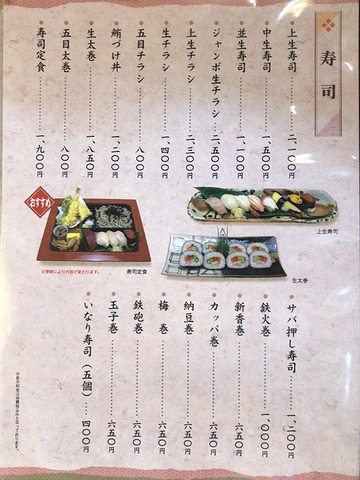 寿司
上生寿司 二、一〇〇円
中生寿司 一、五〇〇円
並生寿司 一、一〇〇円
ジャンボ生チラシ 二、五〇〇円
上生チラシ 二、三〇〇円
生チラシ 一、四〇〇円
五目チラシ 八〇〇円
鮪づけ丼 一、二〇〇円
生太巻 一、八五〇円
五目太巻 八〇〇円
寿司定食 一、九〇〇円
おすすめ
上生寿司
生太巻
寿司定食
※季節により内容が変わります。
サバ押し寿司 一、二〇〇円
鉄火巻 一、〇〇〇円
新香巻 六五〇円
カッパ巻 六五〇円
納豆巻 六五〇円
梅巻 六五〇円
鉄砲巻 六五〇円
玉子巻 六五〇円
いなり寿司（五個） 四〇〇円